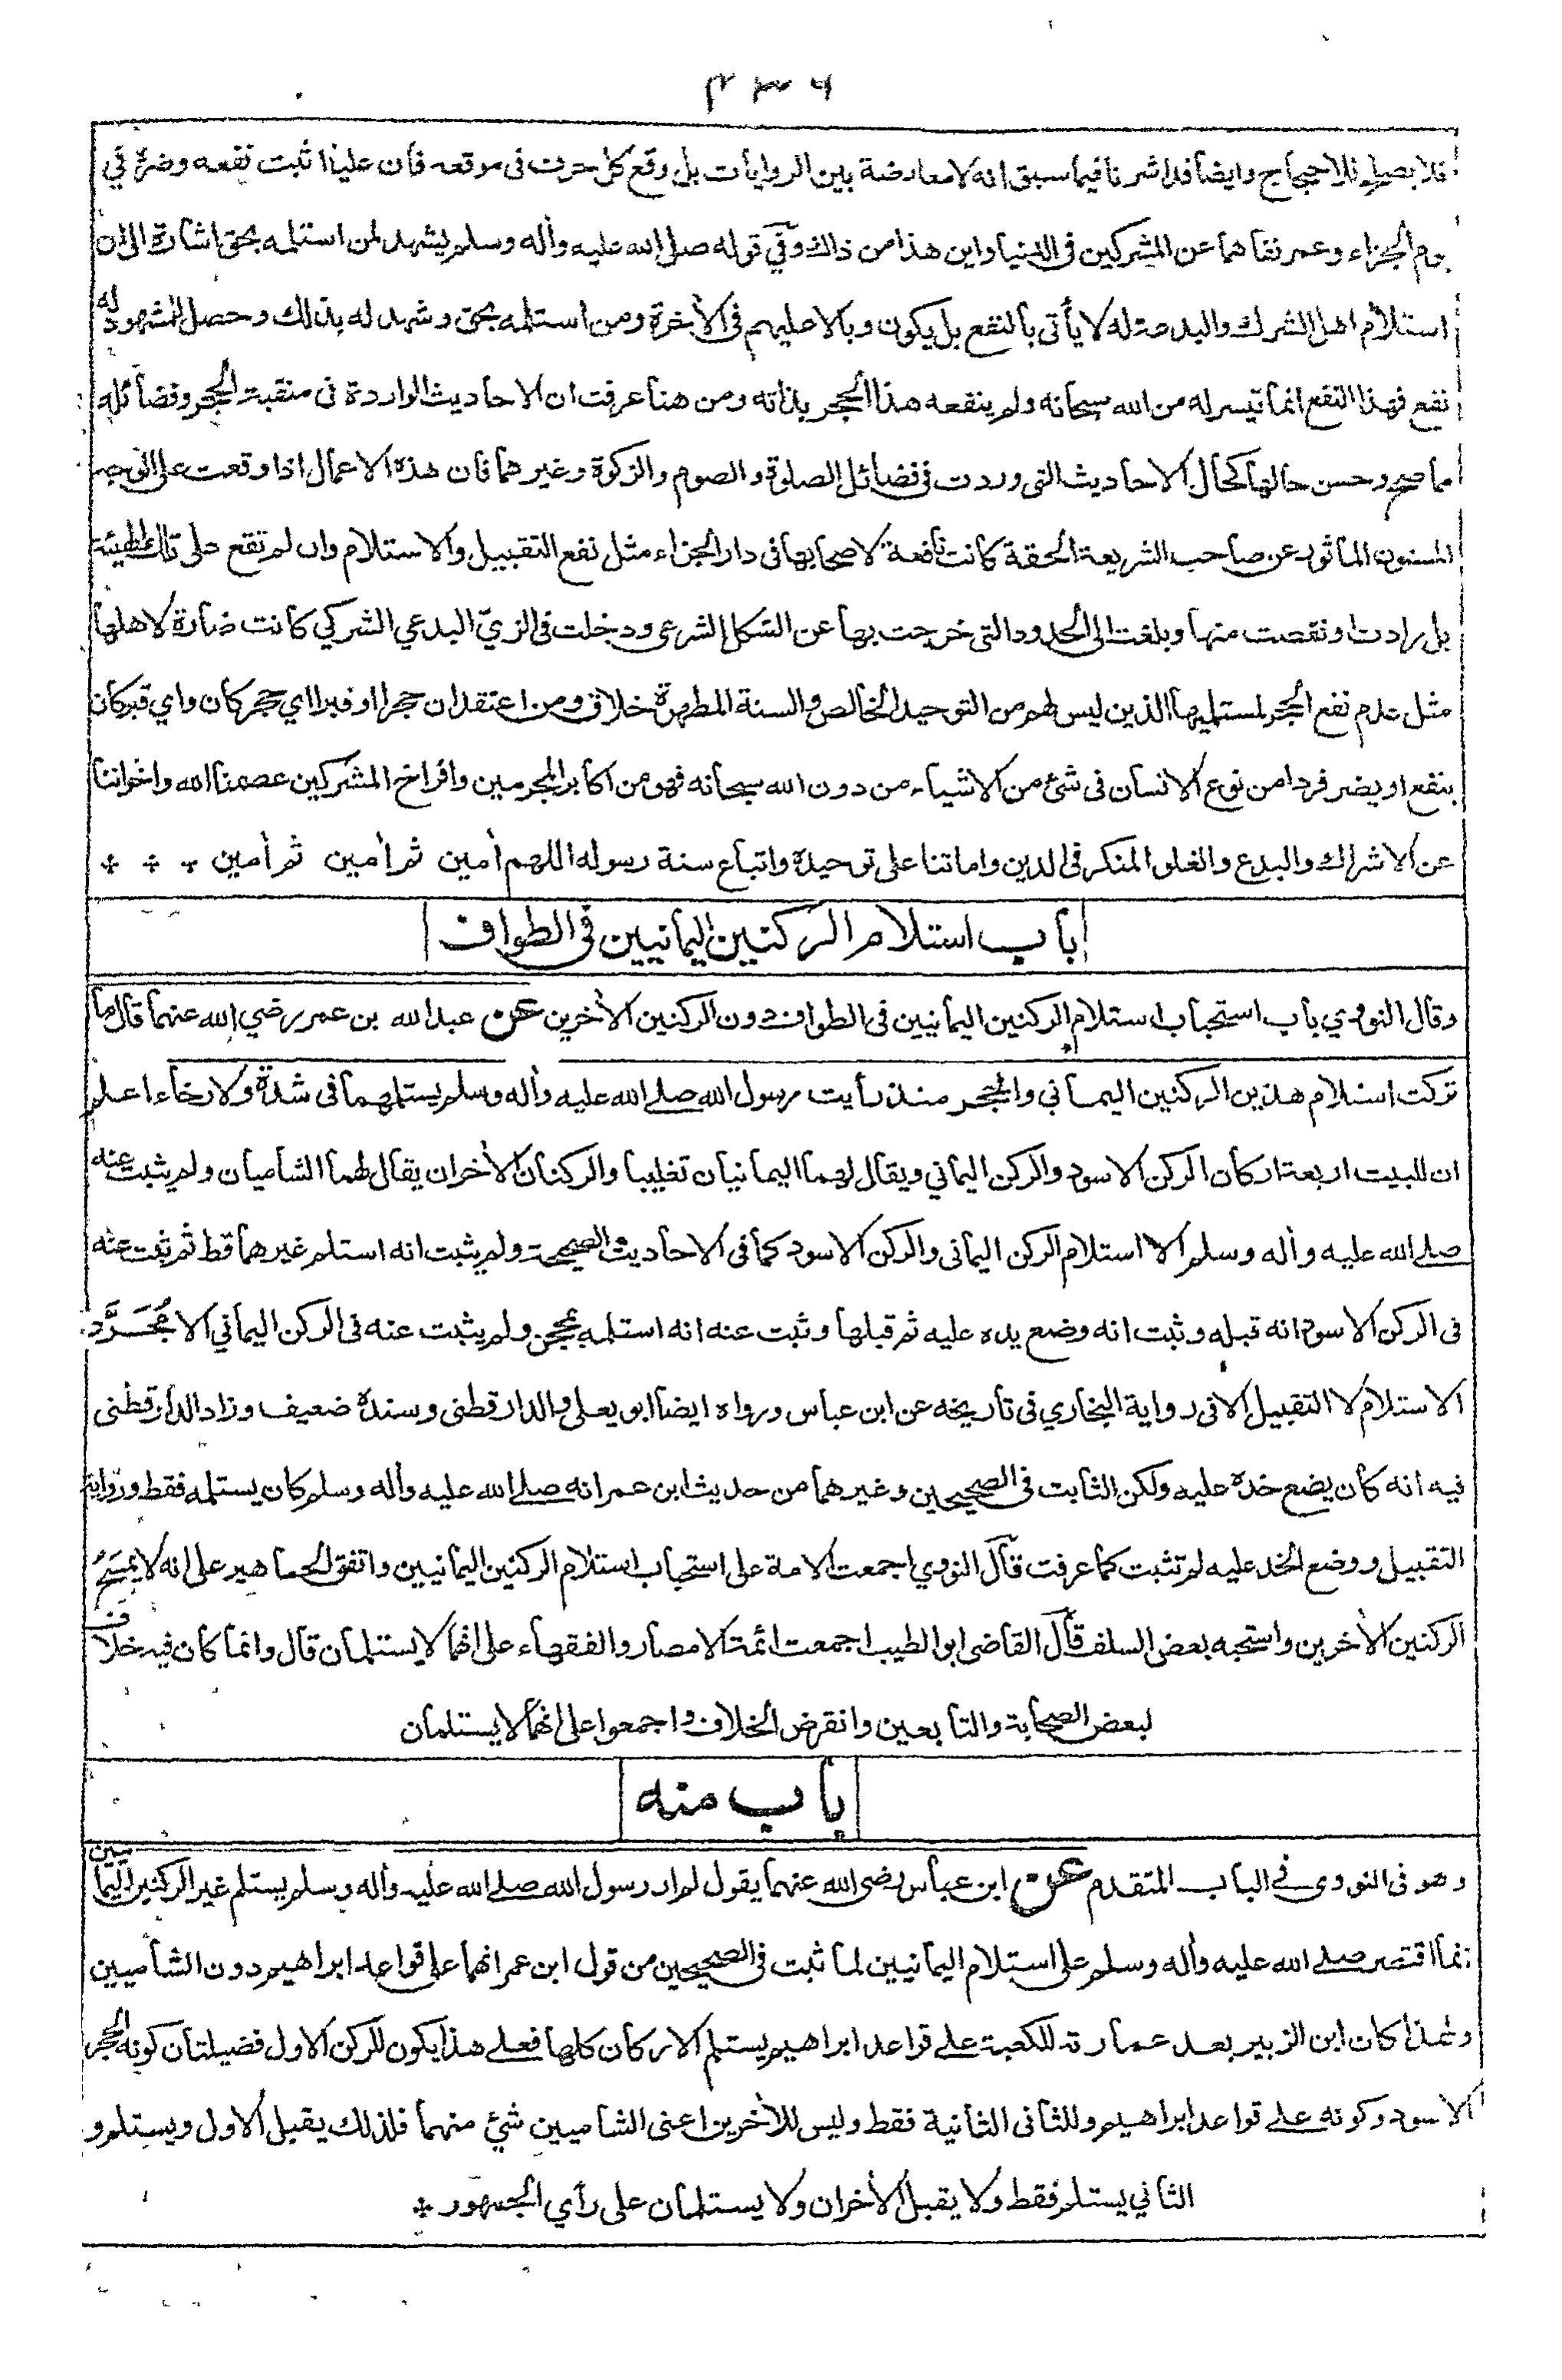 ٤٣٦
فلا يصلح للاحتجاج وايضا قد اشرنا فيما سبق انه لا معارضة بين الروايات بل وقع كل حرف فى موقعه فان عليا اثبت نفعه وضره في
يوم الجزاء وعمر نفاهما عن المشركين فى الدنيا واين هذا من ذاك وفي قوله صلى الله عليه وأله وسلم يشهد لمن استلمه بحق اشارة الى ان
استلام اهل الشرك والبدعة له لا يأتى بالنفع بل يكون وبالا عليهم فى الأخرة ومن استلمه بحق وشهد له بذلك وحصل للمشهود له
نفع فهذا النفع انما تيسر له من الله سبحانه ولم ينفعه هذا الحجر بذاته ومن هنا عرفت ان الاحاديث الواردة فى منقبة الحجر وفضائله
مما صح وحسن حالها كحال الاحاديث التى وردت فى فضائل الصلوة والصوم والزكوة وغيرها فان هذه الاعمال اذا وقعت على الوجه
المسنون المأثور عن صاحب الشريعة الحقة كانت نافعة لاصحابها فى دار الجزاء مثل نفع التقبيل والاستلام وان لم تقع على تلك الهيئة
بل زادت او نقصت منها وبلغت الى الحدود التى خرجت بها عن الشكل الشرعى ودخلت فى الزيّ البدعي الشركي كانت ضارة لاهلها
مثل عدم نفع الحجر لمستلميها الذين ليس لهم من التوحيد الخالص والسنة المطهرة خلاق ومن اعتقد ان حجرا او قبرا اي حجر كان واي قبر كان
ينفع او يضر فردا من نوع الانسان فى شئ من الاشياء من دون الله سبحانه فهو من اكابر المجرمين وافراخ المشركين عصمنا الله واخواننا
عن الاشراك والبدع والغلو المنكر فى الدين واماتنا على توحيده واتباع سنة رسوله اللهم أمين ثم أمين ثم أمين
باب استلام الركنين اليمانيين فى الطواف
وقال النووي باب استحباب استلام الركنين اليمانيين فى الطواف دون الركنين الأخرين عن عبد الله بن عمر رضي الله عنهما قال ما
تركت استلام هذين الركنين اليماني والحجر منذ رأيت رسول الله صلى الله عليه وأله وسلم يستلمهما فى شدة ولا رخاء اعلم
ان للبيت اربعة اركان الركن الاسود والركن اليماني ويقال لهما اليمانيان تغليبا والركنان الأخران يقال لهما الشاميان ولم يثبت عنه
صلى الله عليه وأله وسلم الا استلام الركن اليمانى والركن الاسود كما فى الاحاديث الصحيحة ولم يثبت انه استلم غيرهما قط ثم ثبت عنه
فى الركن الاسود انه قبله وثبت انه وضع يده عليه ثم قبلها وثبت عنه انه استلمه بمحجن ولم يثبت عنه فى الركن اليماني الا مُجَرَّد
الاستلام لا التقبيل الا فى رواية البخاري فى تاريخه عن ابن عباس ورواه ايضا ابو يعلى والدارقطنى وسنده ضعيف وزاد الدارقطنى
فيه انه كان يضع خده عليه ولكن الثابت فى الصحيحين وغيرهما من حديث ابن عمر انه صلى الله عليه وأله وسلم كان يستلمه فقط ورواية
التقبيل ووضع الخد عليه لم تثبت كما عرفت قال النووي اجمعت الامة على استحباب استلام الركنين اليمانيين واتفق الجماهير على انه لا يمسح
الركنين الأخرين واستحبه بعض السلف قال القاضى ابو الطيب اجمعت ائمة الامصار والفقهاء على انهما لا يستلمان قال وانما كان فيه خلاف
لبعض الصحابة والتابعين وانقرض الخلاف واجمعوا على انهما لا يستلمان
باب منه
وهو فى النووى في الباب المتقدم عن ابن عباس رضى الله عنهما يقول لم ار رسول الله صلى الله عليه وأله وسلم يستلم غير الركنين اليمانيين
انما اقتصر صلى الله عليه وأله وسلم على استلام اليمانيين لما ثبت فى الصحيحين من قول ابن عمر انهما على قواعد ابراهيم دون الشاميين
ولهذا كان ابن الزبير بعد عمارته للكعبة على قواعد ابراهيم يستلم الاركان كلها فعلى هذا يكون للركن الاول فضيلتان كونه الحجر
الاسود وكونه على قواعد ابراهيم وللثانى الثانية فقط وليس للأخرين اعنى الشاميين شئ منهما فلذلك يقبل الاول ويستلم و
الثاني يستلم فقط ولا يقبل الأخران ولا يستلمان على رأي الجمهور